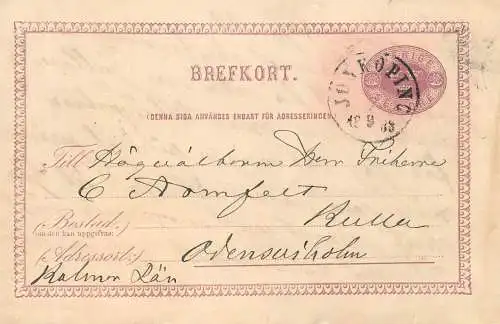 SVERIGE
BREFKORT.
JÖNKÖPING
18 9 83
(DENNA SIDA ANVÄNDES ENDAST FÖR ADRESSERINGEN
Till Högvälborne Herr Friherre
C Armfelt
(Bostad:) Kulla
(om den kan uppgifvas)
(Adressort:) Odensviholm
Kalmar Län